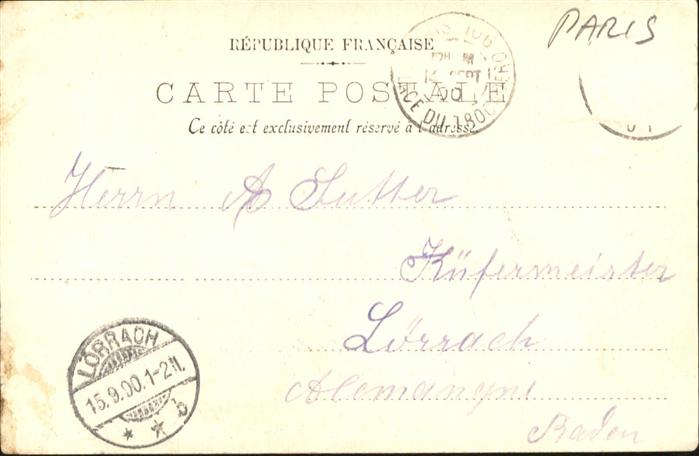 PARIS
RÉPUBLIQUE FRANÇAISE
CARTE POSTALE
Ce côté est exclusivement réservé à l'adresse
PARIS 106
SEPT
00
PLACE DU TROCADERO
01
Herrn A Sutter
Küfermeister
Lörrach
Alemangne
Baden
LÖRRACH
15.9.00.1-2N.
* * b